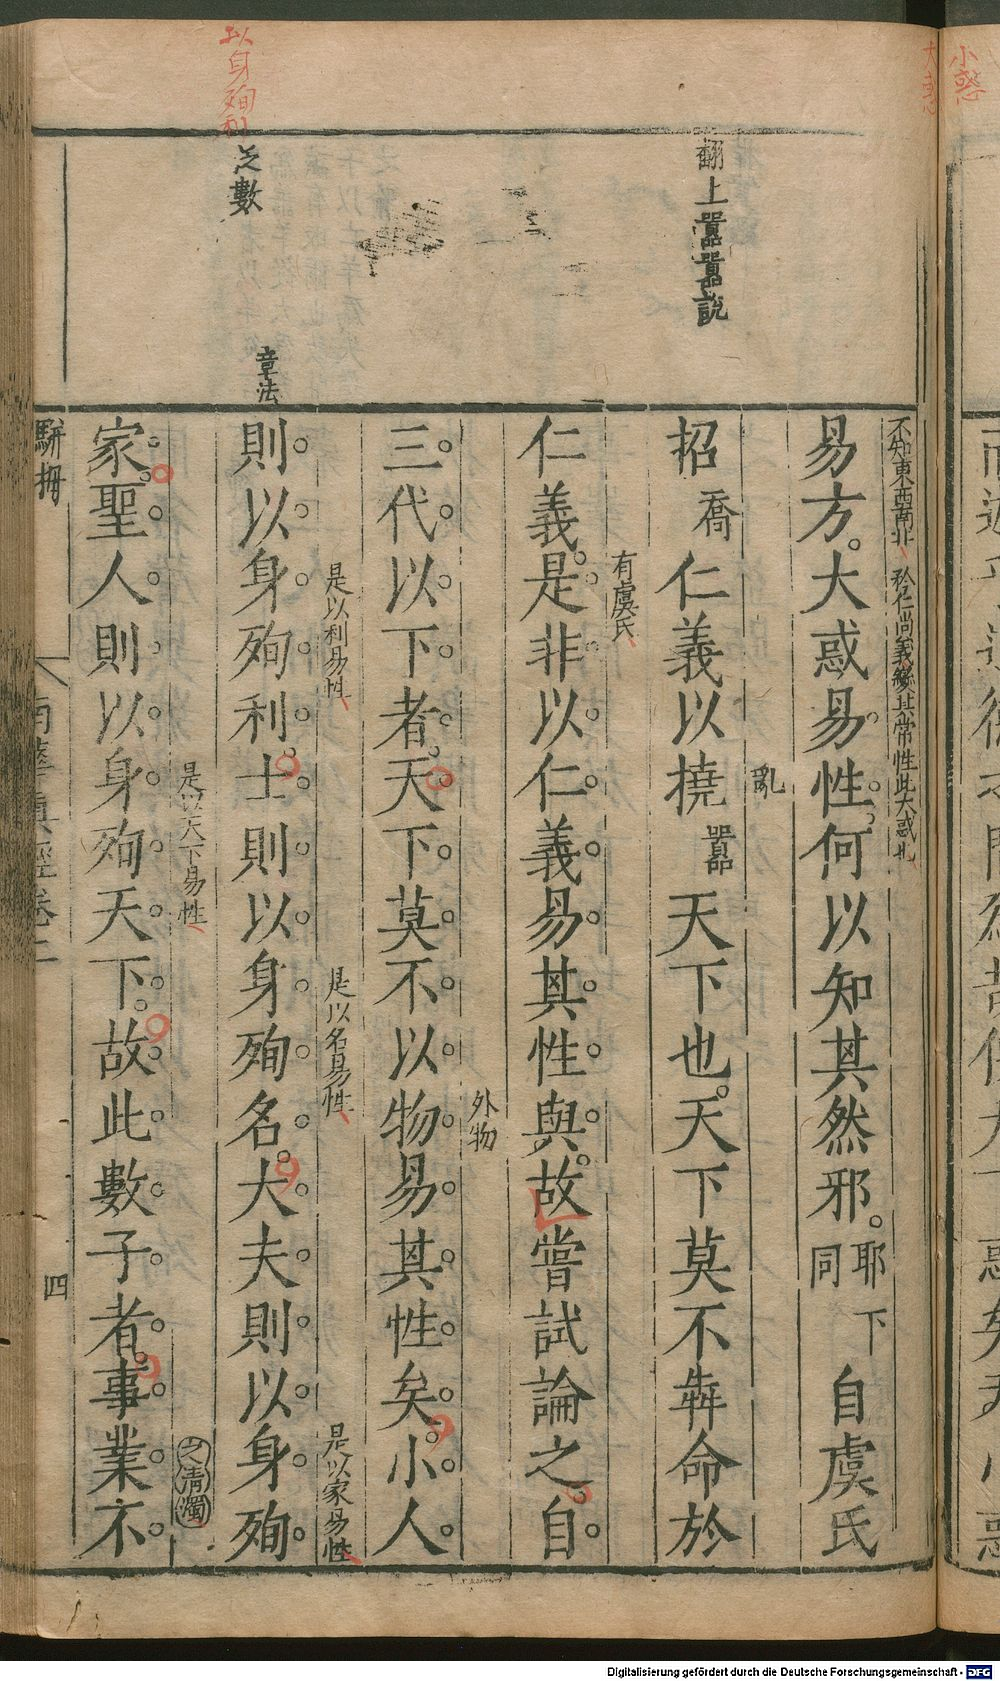 小惑
大惑
以身殉利
翻上囂囂說
之數
章法
不知東西南北 矜仁尚義變其常性此大惑也
易方大惑易性何以知其然邪耶下同自虞氏
亂
招喬仁義以撓囂天下也天下莫不犇命於
有虞氏
仁義是非以仁義易其性與故嘗試論之自
外物
三代以下者天下莫不以物易其性矣小人
是以利易性 是以名易性 是以家易性
則以身殉利士則以身殉名大夫則以身殉
是以天下易性 之清濁
家聖人則以身殉天下故此數子者事業不
駢拇 南華真經卷三 四
Digitalisierung gefördert durch die Deutsche Forschungsgemeinschaft - DFG